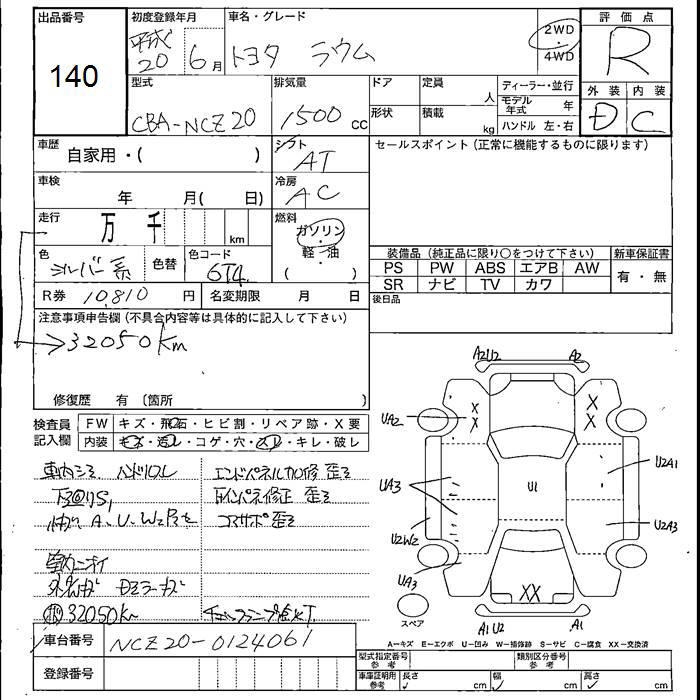 出品番号
140
初度登録年月
平成
20 6月
車名・グレード
トヨタ ラウム
2WD
・
4WD
評価点
R
外装 内装
D C
型式
CBA-NCZ20
排気量
1500 cc
ドア
形状
定員 人
積載 kg
ディーラー・並行
モデル年式 年
ハンドル 左・右
車歴
自家用・( )
シフト
AT
車検
年 月( 日)
冷房
AC
走行
万 千 km
燃料
ガソリン
・
軽・油
( )
色
シルバー系
色替
色コード
6T4
R券 10,810 円
名変期限 月 日
セールスポイント(正常に機能するものに限ります)
装備品(純正品に限り○をつけて下さい)
新車保証書
PS PW ABS エアB AW
SR ナビ TV カワ
有・無
後日品
注意事項申告欄(不具合内容等は具体的に記入して下さい)
32050Km
修復歴 有 〔箇所 〕
検査員記入欄
FW キズ・飛石・ヒビ割・リペア跡・X要
内装 キズ・汚レ・コゲ・穴・スレ・キレ・破レ
車内シミ ハンドルスレ
下回りS,
A、U、W2
室内ニオイ
32050Km
エンドパネル加修 歪ミ
インパネ修正 歪ミ
コアサポ歪ミ
A2U2 A2
X X
X X
UA2
UA3
U2W2
UA3
U1
U2A1
U2A3
XX
A1 U2 A1
スペア
A-キズ E-エクボ U-凹み W-補修跡 S-サビ C-腐食 XX-交換済
車台番号 NCZ20-0124061
登録番号
型式指定番号
参考
類別区分番号
参考
車庫証明用
参考
長さ
幅
高さ